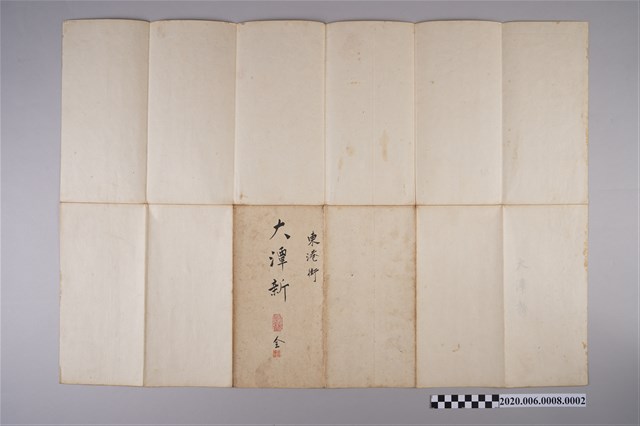 東港街
大潭新
全
2020.006.0008.0002